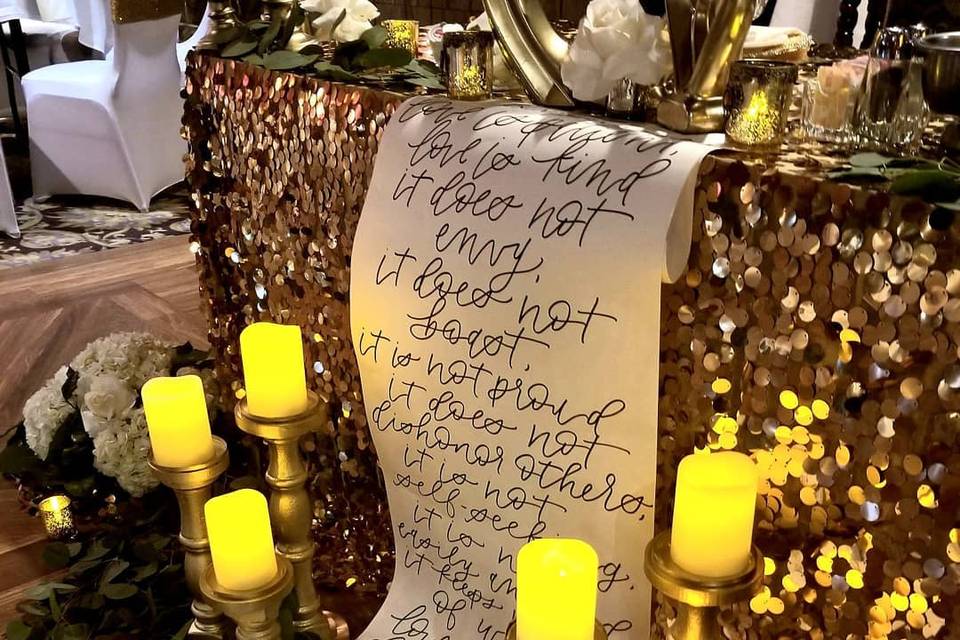 love is kind
it does not
envy,
it does not
boast,
it is not proud
it does not
dishonor others,
it is not
self-seek
it is n g.
easily
it keeps
of